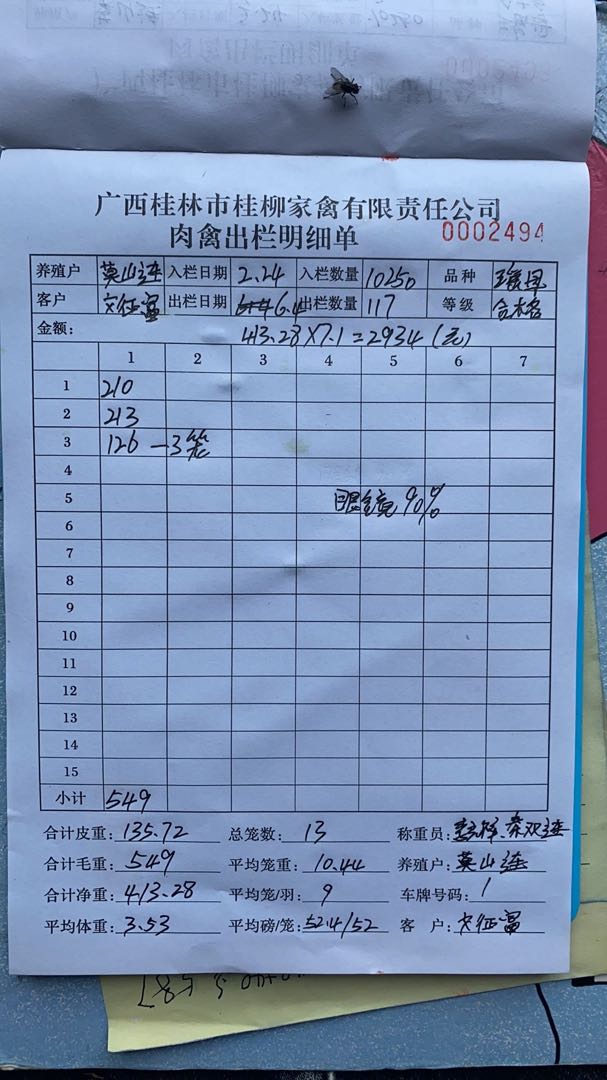 广西桂林市桂柳家禽有限责任公司
肉禽出栏明细单 0002494
养殖户 莫山连 入栏日期 2.24 入栏数量 10250 品种
客户 文征富 出栏日期 6.4 出栏数量 117 等级 合格
金额: 413.28×7.1=2934(元)
1 2 3 4 5 6 7
1 210
2 213
3 126 —3笼
4
5 眼镜90%
6
7
8
9
10
11
12
13
14
15
小计 549
合计皮重: 135.72 总笼数: 13 称重员: 秦双连
合计毛重: 549 平均笼重: 10.44 养殖户: 莫山连
合计净重: 413.28 平均笼/羽: 9 车牌号码: 1
平均体重: 3.53 平均磅/笼: 52.4/52 客户: 文征富